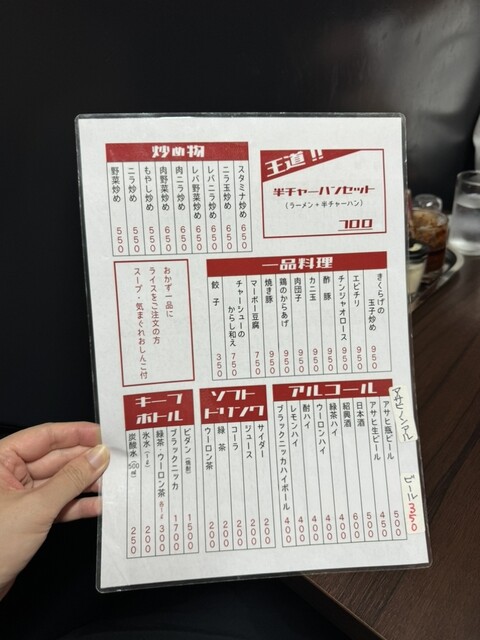 炒め物
スタミナ炒め 650
ニラ玉炒め 650
レバニラ炒め 650
レバ野菜炒め 650
肉ニラ炒め 650
肉野菜炒め 650
もやし炒め 550
ニラ炒め 550
野菜炒め 550
王道!!
半チャーハンセット
(ラーメン+半チャーハン)
おかず一品に
ライスをご注文の方
スープ・気まぐれおしんこ付
一品料理
きくらげの
玉子炒め 950
エビチリ 950
チンジャオロース 950
酢豚 950
カニ玉 950
肉団子 950
鶏のからあげ 950
焼き豚 950
マーボー豆腐 750
チャーシューの
からし和え 750
餃子 350
キープ
ボトル
ビダン(焼酎) 1500
ブラックニッカ 1700
緑茶・ウーロン茶 300
氷水 200
炭酸水(500ml) 250
ソフト
ドリンク
サイダー 200
ジュース 200
コーラ 200
緑茶 200
ウーロン茶 200
アルコール
アサヒ瓶ビール 500
アサヒ生ビール 450
日本酒
紹興酒
緑茶ハイ 400
ウーロンハイ 400
酎ハイ 400
レモンハイ 400
ブラックニッカハイボール 400
ビール 350